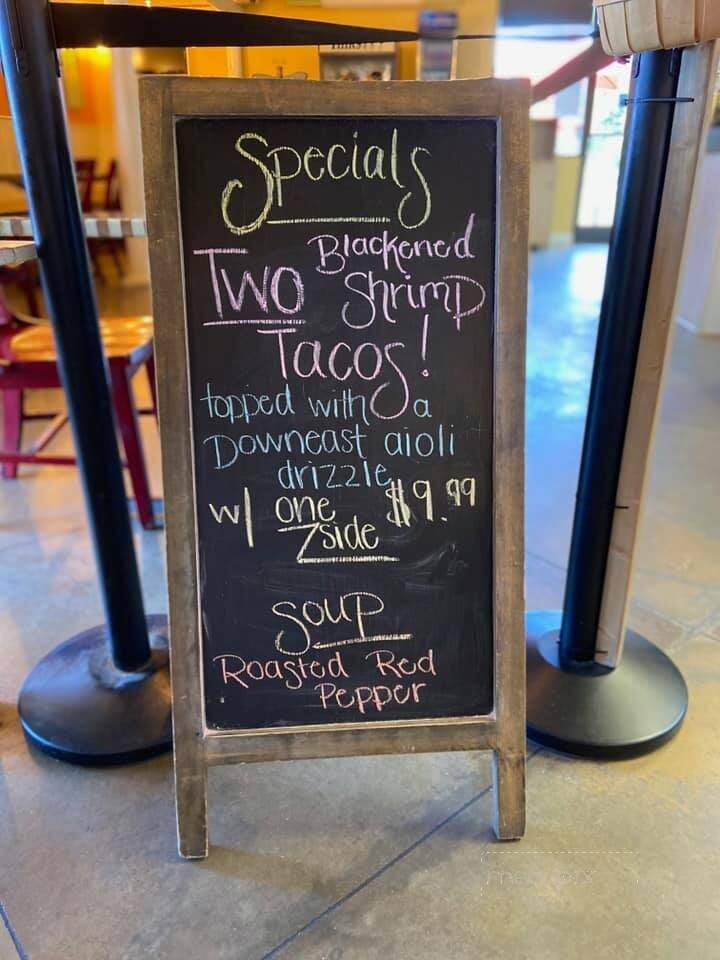 Specials
Two Blackened Shrimp
Tacos!
topped with a
Downeast aioli
drizzle
w/ one side $9.99
Soup
Roasted Red
Pepper